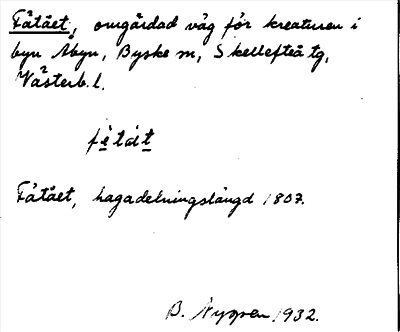 Fätået, omgärdad väg för kreaturen i
byn Åbyn, Byske sn, Skellefteå tg,
Västerb. l.
Fätået, hagadelningslängd 1807.
B. Nygren 1932.